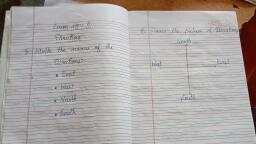 Direction
Write the names of the
Directions
• East
• West
• North
• South
the picture of Directions
North
West
East
South